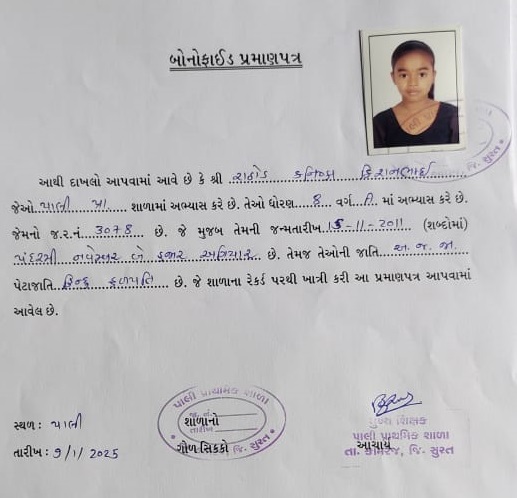 બોનોફાઈડ પ્રમાણપત્ર
આથી દાખલો આપવામાં આવે છે કે શ્રી રાઠોડ કનિષ્કા કિરણભાઈ
જેઓ પાલી પ્રા. શાળામાં અભ્યાસ કરે છે. તેઓ ધોરણ 8 વર્ગ માં અભ્યાસ કરે છે.
જેમનો જ.ર.નં. 3078 છે. જે મુજબ તેમની જન્મતારીખ 15-11-2011 (શબ્દોમાં)
પંદરમી નવેમ્બર બે હજાર અગિયાર છે. તેમજ તેઓની જાતિ અ. જ. જા.
પેટાજાતિ હિન્દુ હળપતિ છે. જે શાળાના રેકર્ડ પરથી ખાત્રી કરી આ પ્રમાણપત્ર આપવામાં
આવેલ છે.
સ્થળ : પાલી
તારીખ : 9/1/2025
પાલી પ્રાથમિક શાળા
તારીખ
જિ. સુરત
શાળાનો
ગોળ સિક્કો
મુખ્ય શિક્ષક
પાલી પ્રાથમિક શાળા
આચાર્ય
તા. કામરેજ, જિ. સુરત
જિ. સુરત